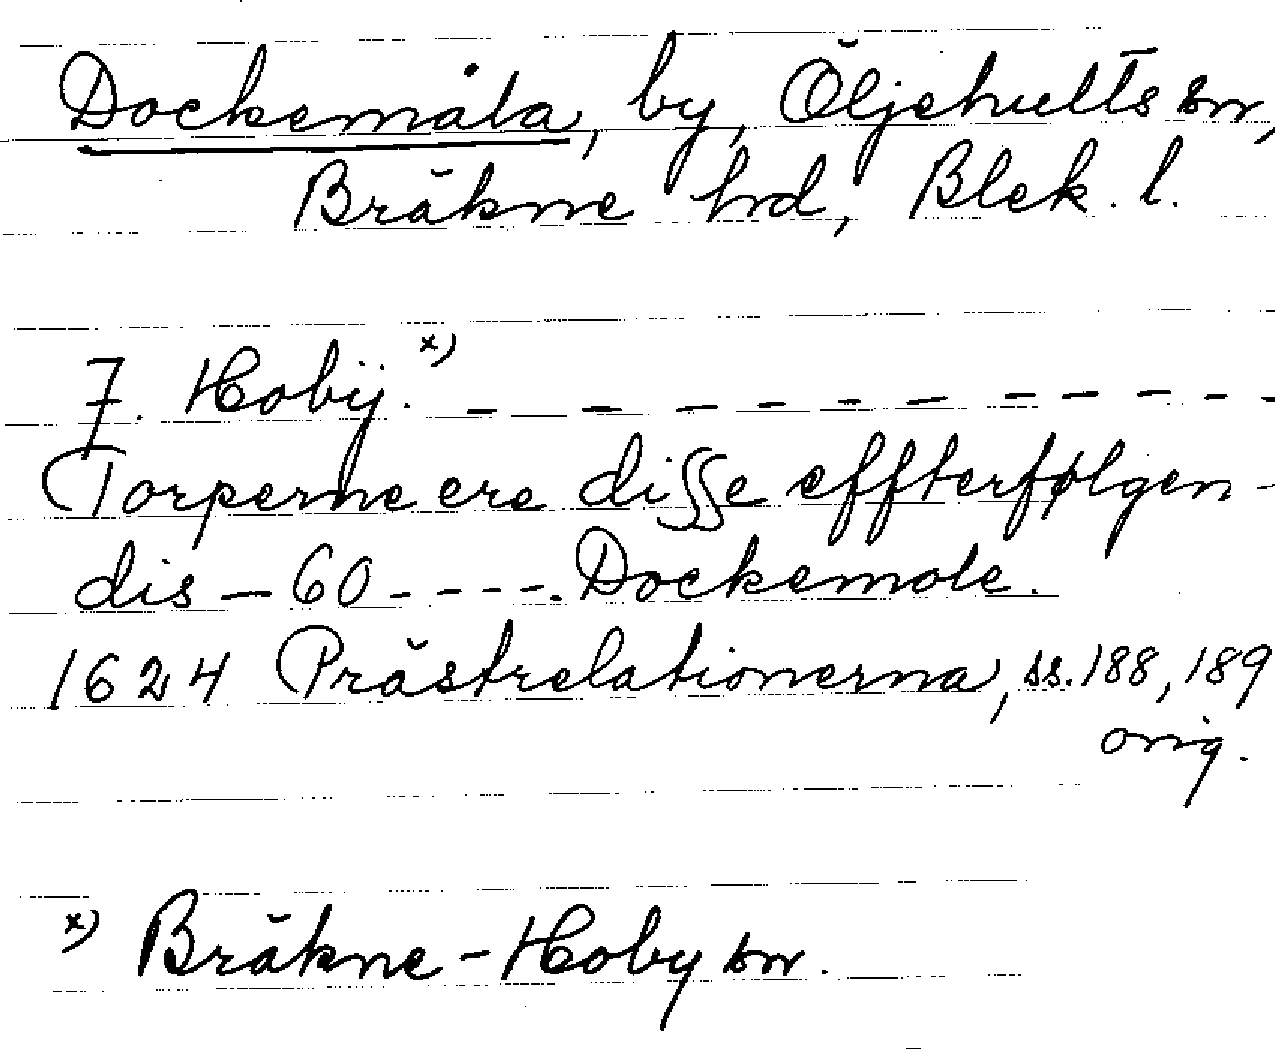 Dockemåla, by, Öljehults sn,
Bräkne hd, Blek. l.
7. Hobÿ. x) – – – – – – – – – –
Torperne ere disse effterfølgen-
dis – 60 - - - -. Dockemole.
1624 Prästrelationerna, ss. 188, 189
orig.
x) Bräkne-Hoby sn.